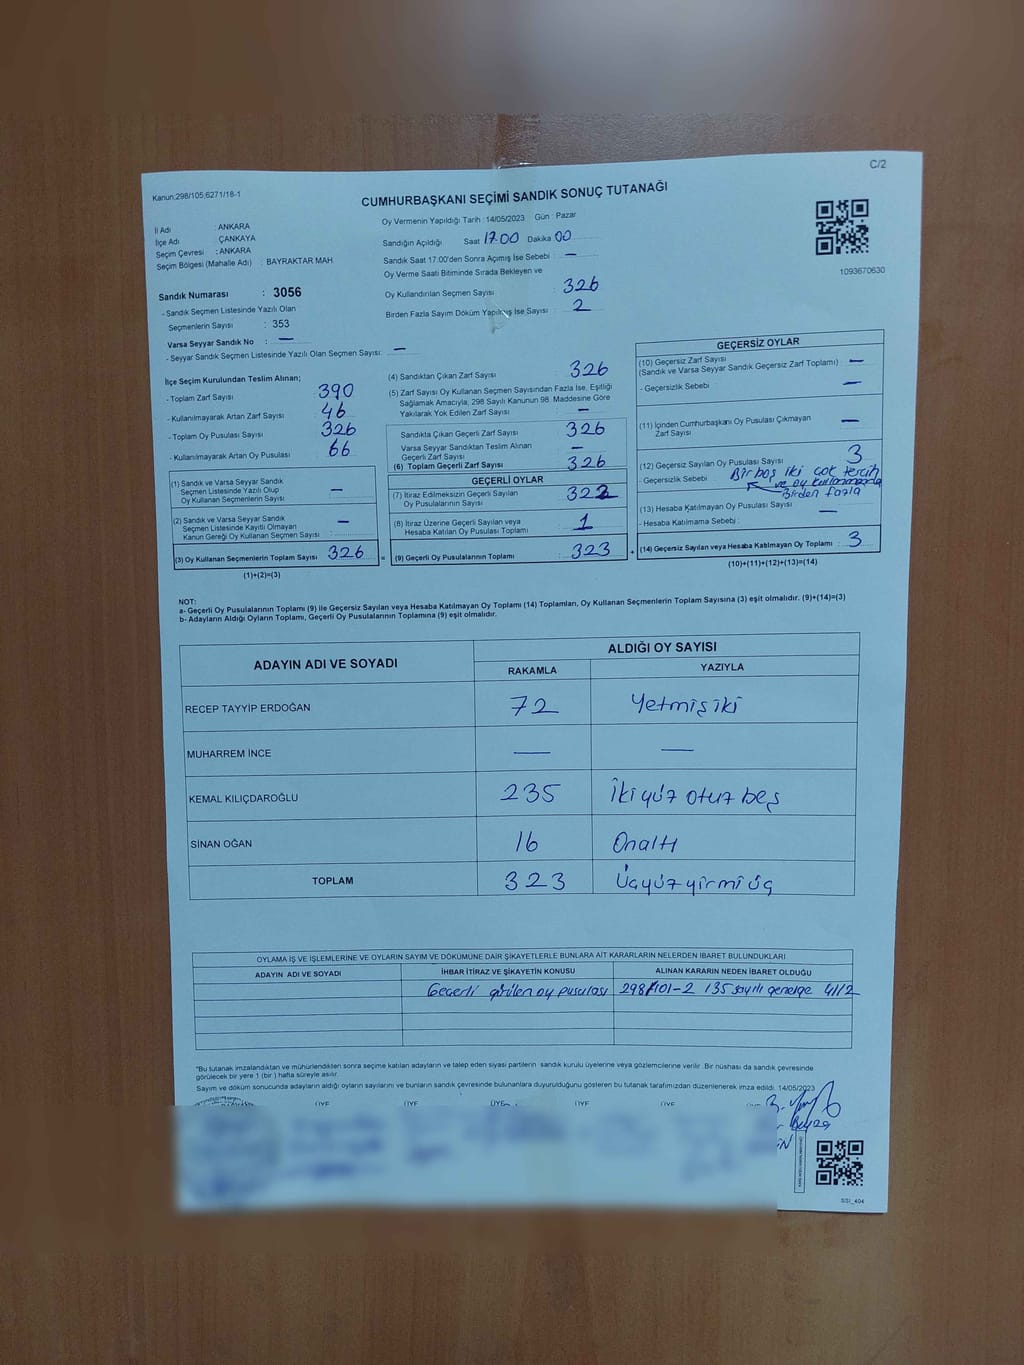 C/2
Kanun:298/105,6271/18-1
CUMHURBAŞKANI SEÇİMİ SANDIK SONUÇ TUTANAĞI
İl Adı : ANKARA
İlçe Adı ÇANKAYA
Seçim Çevresi : ANKARA
Seçim Bölgesi (Mahalle Adı) : BAYRAKTAR MAH.
Oy Vermenin Yapıldığı Tarih : 14/05/2023 Gün : Pazar
Sandığın Açıldığı Saat 17.00 Dakika 00
Sandık Saat 17:00'den Sonra Açımış İse Sebebi : —
Oy Verme Saati Bitiminde Sırada Bekleyen ve
Oy Kullandırılan Seçmen Sayısı : 326
Birden Fazla Sayım Döküm Yapılmış İse Sayısı : 2
1093670630
Sandık Numarası : 3056
- Sandık Seçmen Listesinde Yazılı Olan
Seçmenlerin Sayısı : 353
Varsa Seyyar Sandık No : —
- Seyyar Sandık Seçmen Listesinde Yazılı Olan Seçmen Sayısı: —
İlçe Seçim Kurulundan Teslim Alınan;
- Toplam Zarf Sayısı 390
- Kullanılmayarak Artan Zarf Sayısı 46
- Toplam Oy Pusulası Sayısı 326
- Kullanılmayarak Artan Oy Pusulası 66
(1) Sandık ve Varsa Seyyar Sandık
Seçmen Listesinde Yazılı Olup
Oy Kullanan Seçmenlerin Sayısı —
(2) Sandık ve Varsa Seyyar Sandık
Seçmen Listesinde Kayıtlı Olmayan
Kanun Gereği Oy Kullanan Seçmen Sayısı : —
(3) Oy Kullanan Seçmenlerin Toplam Sayısı 326 =
(1)+(2)=(3)
(4) Sandıktan Çıkan Zarf Sayısı 326
(5) Zarf Sayısı Oy Kullanan Seçmen Sayısından Fazla İse, Eşitliği
Sağlamak Amacıyla, 298 Sayılı Kanunun 98. Maddesine Göre
Yakılarak Yok Edilen Zarf Sayısı : —
Sandıkta Çıkan Geçerli Zarf Sayısı 326
Varsa Seyyar Sandıktan Teslim Alınan
Geçerli Zarf Sayısı —
(6) Toplam Geçerli Zarf Sayısı 326
GEÇERLİ OYLAR
(7) İtiraz Edilmeksizin Geçerli Sayılan
Oy Pusulalarının Sayısı : 322
(8) İtiraz Üzerine Geçerli Sayılan veya
Hesaba Katılan Oy Pusulası Toplamı 1
(9) Geçerli Oy Pusulalarının Toplamı : 323 +
GEÇERSİZ OYLAR
(10) Geçersiz Zarf Sayısı —
(Sandık ve Varsa Seyyar Sandık Geçersiz Zarf Toplamı)
- Geçersizlik Sebebi : —
(11) İçinden Cumhurbaşkanı Oy Pusulası Çıkmayan
Zarf Sayısı —
(12) Geçersiz Sayılan Oy Pusulası Sayısı 3
- Geçersizlik Sebebi : Bir boş iki çok tercih
ve oy kullanmada
Birden fazla
(13) Hesaba Katılmayan Oy Pusulası Sayısı —
- Hesaba Katılmama Sebebi :
(14) Geçersiz Sayılan veya Hesaba Katılmayan Oy Toplamı : 3
(10)+(11)+(12)+(13)=(14)
NOT:
a- Geçerli Oy Pusulalarının Toplamı (9) ile Geçersiz Sayılan veya Hesaba Katılmayan Oy Toplamı (14) Toplamları, Oy Kullanan Seçmenlerin Toplam Sayısına (3) eşit olmalıdır. (9)+(14)=(3)
b- Adayların Aldığı Oyların Toplamı, Geçerli Oy Pusulalarının Toplamına (9) eşit olmalıdır.
ADAYIN ADI VE SOYADI
ALDIĞI OY SAYISI
RAKAMLA YAZIYLA
RECEP TAYYİP ERDOĞAN 72 Yetmişiki
MUHARREM İNCE — —
KEMAL KILIÇDAROĞLU 235 İkiyüz otuz beş
SİNAN OĞAN 16 Onaltı
TOPLAM 323 Üçyüz yirmi üç
OYLAMA İŞ VE İŞLEMLERİNE VE OYLARIN SAYIM VE DÖKÜMÜNE DAİR ŞİKAYETLERLE BUNLARA AİT KARARLARIN NELERDEN İBARET BULUNDUKLARI
ADAYIN ADI VE SOYADI İHBAR İTİRAZ VE ŞİKAYETİN KONUSU ALINAN KARARIN NEDEN İBARET OLDUĞU
Geçerli görülen oy pusulası 298/101-2 135 sayılı genelge 41/2
"Bu tutanak imzalandıktan ve mühürlendikten sonra seçime katılan adayların ve talep eden siyasi partilerin sandık kurulu üyelerine veya gözlemcilerine verilir. Bir nüshası da sandık çevresinde
görülecek bir yere 1 (bir ) hafta süreyle asılır.
Sayım ve döküm sonucunda adayların aldığı oyların sayılarını ve bunların sandık çevresinde bulunanlara duyurulduğunu gösteren bu tutanak tarafımızdan düzenlenerek imza edildi. 14/05/2023
ÜYE ÜYE ÜYE ÜYE ÜYE
SSI_404